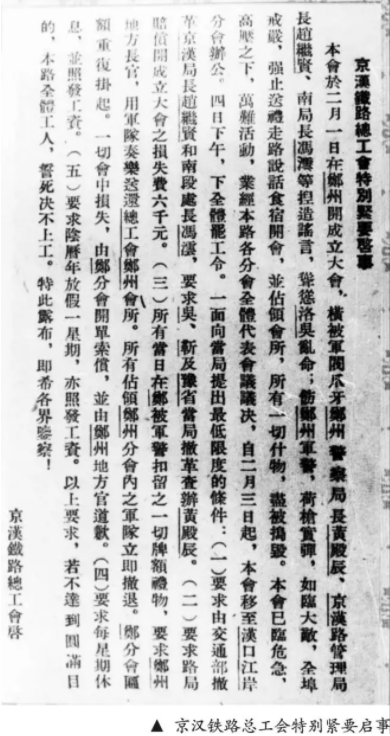 京漢鐵路總工會特別緊要啓事
本會於二月一日在鄭州開成立大會，橫被軍閥爪牙鄭州警察局長黃殿辰、京漢路管理局
長趙繼賢、南局長馮澐等捏造謠言，聳慫洛吳亂命；飭鄭州軍警，荷槍實彈，如臨大敵，全埠
戒嚴，强止送禮走路說話食宿開會，並佔領會所，所有一切什物，盡被搗毀。本會已臨危急，
高壓之下，萬難活動，業經本路各分會全體代表會議議決，自二月三日起，本會移至漢口江岸
分會辦公。四日下午，下全體罷工令。一面向當局提出最低限度的條件：（一）要求由交通部撤
革京漢局長趙繼賢和南段處長馮澐，要求吳、靳及豫省當局撤革查辦黃殿辰。（二）要求路局
賠償開成立大會之損失費六千元。（三）所有當日在鄭被軍警扣留之一切牌額禮物，要求鄭州
地方長官，用軍隊奏樂送還總工會鄭州會所。所有佔領鄭州分會內之軍隊立即撤退。鄭分會匾
額重復掛起。一切會中損失，由鄭分會開單索償，並由鄭州地方官道歉。（四）要求每星期休
息，並照發工資。（五）要求陰曆年放假一星期，亦照發工資。以上要求，若不達到圓滿目
的，本路全體工人，誓死決不上工。特此露布，即希各界鑒察！
京漢鐵路總工會啓
▲ 京汉铁路总工会特别紧要启事